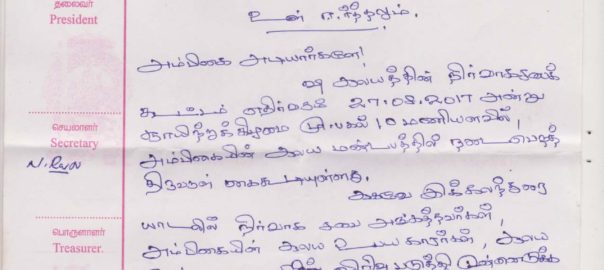 தலைவர்
President
அம்பிகை அடியார்களே!
ஆலயத்தின் நிர்வாகசபைக்
கூட்டம் எதிர்வரும் 27.08.2017 அன்று
செயலாளர்
Secretary
ஞாயிற்றுக்கிழமை மு.பகல் 10 மணியளவில்
அம்பிகையின் ஆலய மண்டபத்தில் நடைபெறத்
திருவருள் கைகூடியுள்ளது.
ஆகவே இக்கலந்துரை
பொருளாளர்
Treasurer.
யாடலில் நிர்வாக சபை அங்கத்தவர்கள்,
அம்பிகையின் ஆலய உபய காரர்கள், ஆலய